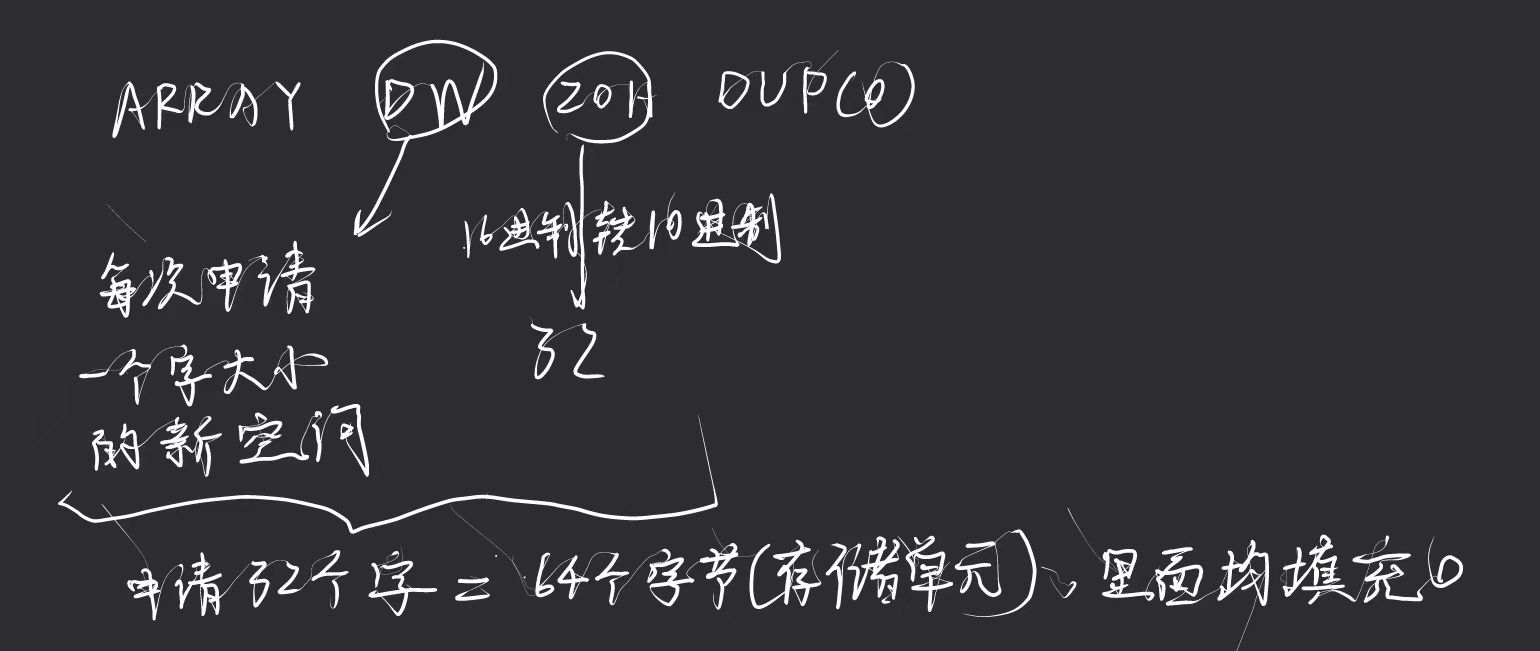 ARRAY DW 20H DUP(0)
16进制转10进制
每次申请
一个字大小
的新空间
32
申请32个字=64个字节(存储单元)、里面均填充0